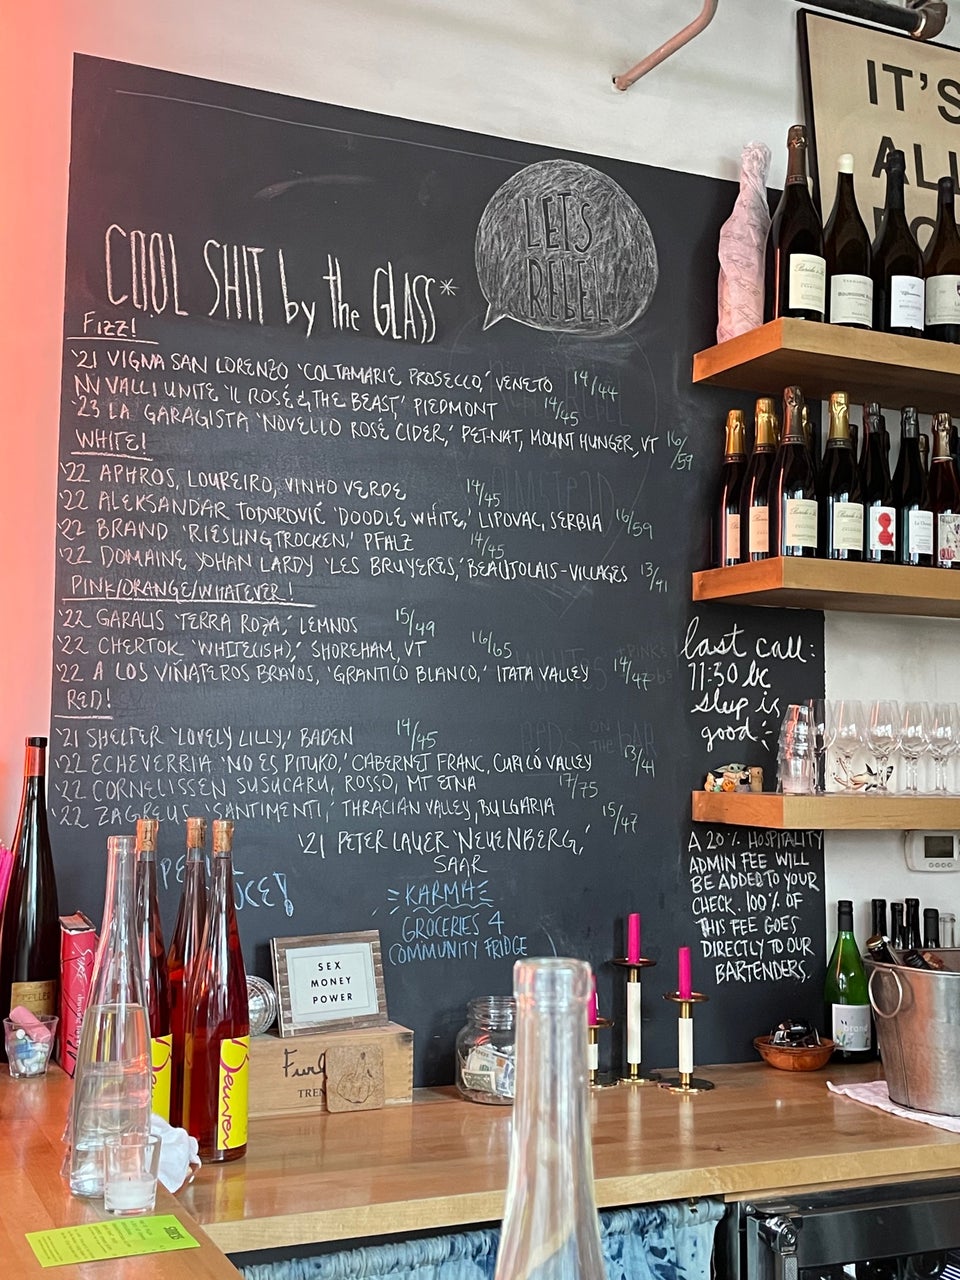 IT'S
ALL
LETS
REBEL
COOL SHIT by the GLASS*
FIZZ!
'21 VIGNA SAN LORENZO 'COL TAMARIE PROSECCO,' VENETO 14/44
NV VALLI UNITE 'IL ROSÉ & THE BEAST,' PIEDMONT 14/45
'23 LA GARAGISTA 'NOVELLO ROSÉ CIDER,' PET-NAT, MOUNT HUNGER, VT 16/59
WHITE!
'22 APHROS, LOUREIRO, VINHO VERDE 14/45
'22 ALEKSANDAR TODOROVIĆ 'DOODLE WHITE,' LIPOVAC, SERBIA 16/59
'22 BRAND 'RIESLING TROCKEN,' PFALZ 14/45
'22 DOMAINE YOHAN LARDY 'LES BRUYERES,' BEAUJOLAIS-VILLAGES 13/41
PINK/ORANGE/WHATEVER!
'22 GARALIS 'TERRA ROZA,' LEMNOS 15/49
'22 CHERTOK 'WHITE(ISH),' SHOREHAM, VT 16/65
'22 A LOS VIÑATEROS BRAVOS, 'GRANITICO BLANCO,' ITATA VALLEY 14/47
RED!
'21 SHELTER 'LOVELY LILLY,' BADEN 14/45
'22 ECHEVERRIA 'NO ES PITUKO,' CABERNET FRANC, CURICÓ VALLEY 13/41
'22 CORNELISSEN SUSUCARU, ROSSO, MT ETNA 17/75
'22 ZAGREUS 'SANTIMENTI,' THRACIAN VALLEY, BULGARIA 15/47
'21 PETER LAUER 'NEUENBERG,'
SAAR
KARMA
GROCERIES 4
COMMUNITY FRIDGE
last call:
11:30 bc
sleep is
good
A 20% HOSPITALITY
ADMIN FEE WILL
BE ADDED TO YOUR
CHECK. 100% OF
THIS FEE GOES
DIRECTLY TO OUR
BARTENDERS.
SEX
MONEY
POWER
Furl
TREN
brand